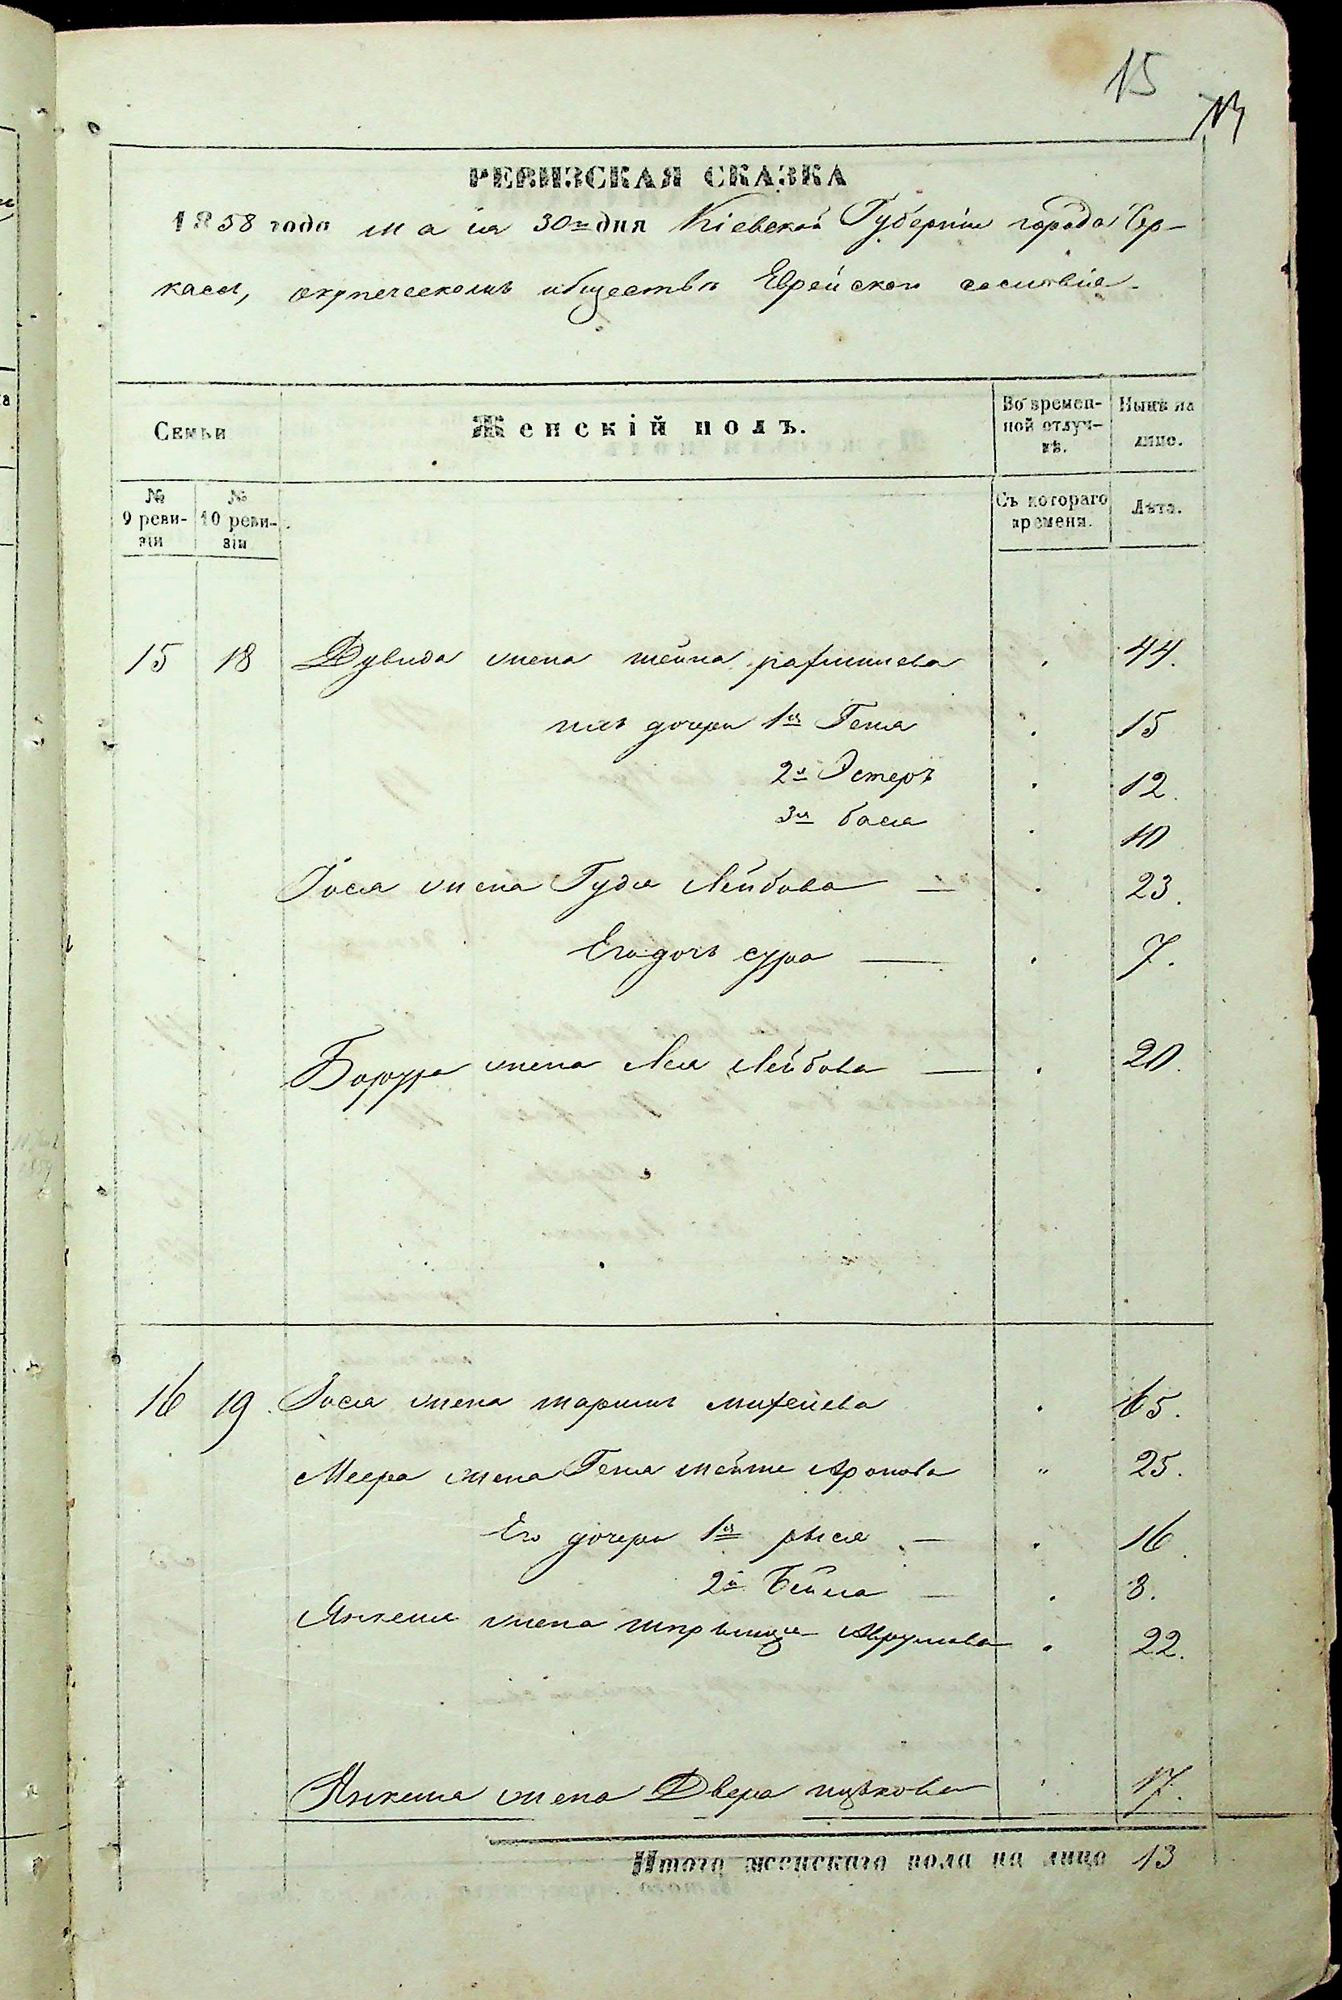 15
РЕВИЗСКАЯ СКАЗКА
1858 года мая 30го дня Кіевской Губерніи города Чер-
касъ, окупеческомъ обществѣ Еврейскаго сословія.
Семьи
Женскій полъ.
Во времен-
ной отлуч-
кѣ.
Нынѣ на
лицо.
№
9 реви-
зіи
№
10 реви-
зіи
Съ котораго
времени.
Лѣта.
15 18 Дувида жена шейна 44.
ихъ дочери 1я Геня 15
2я Эстеръ 12.
3я бася 10
Іося жена Гудя Лейбова — 23.
Его дочь сура — 7.
Боруха жена Лея Лейбова — 20.
16 19 Іося жена Михелева 65.
Меера жена Геня шейне Аронова 25.
Его дочери 1я рыся — 16.
2я Бейла — 8.
Янкеля жена шпрынца Аврумова 22.
Янкеля жена Двера ицкова 17.
Итого женскаго пола на лицо 13